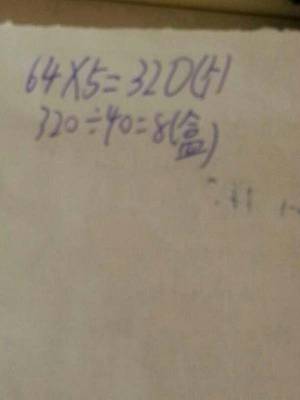 64×5=320(
320÷40=8(盒)